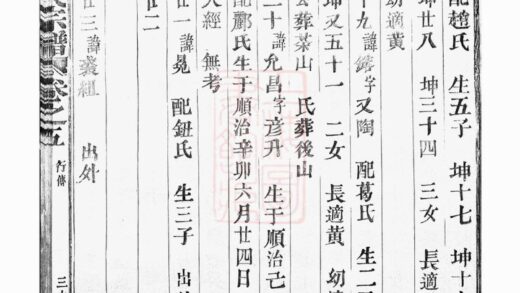 配趙氏 生五子 坤十七 坤十
坤廿八 坤三十四 三女 長適
幼適黃
十九諱 字又陶 配葛氏 生二
坤又五十一 二女 長適黃 幼
葬菜山 氏葬後山
二十諱允昌字彦升 生于順治己
配酈氏生于順治辛卯六月廿四日
人經 無考
廿一諱晃 配鈕氏 生三子 出
廿二
廿三諱 組 出外
宗譜 卷之五 行傳 三十